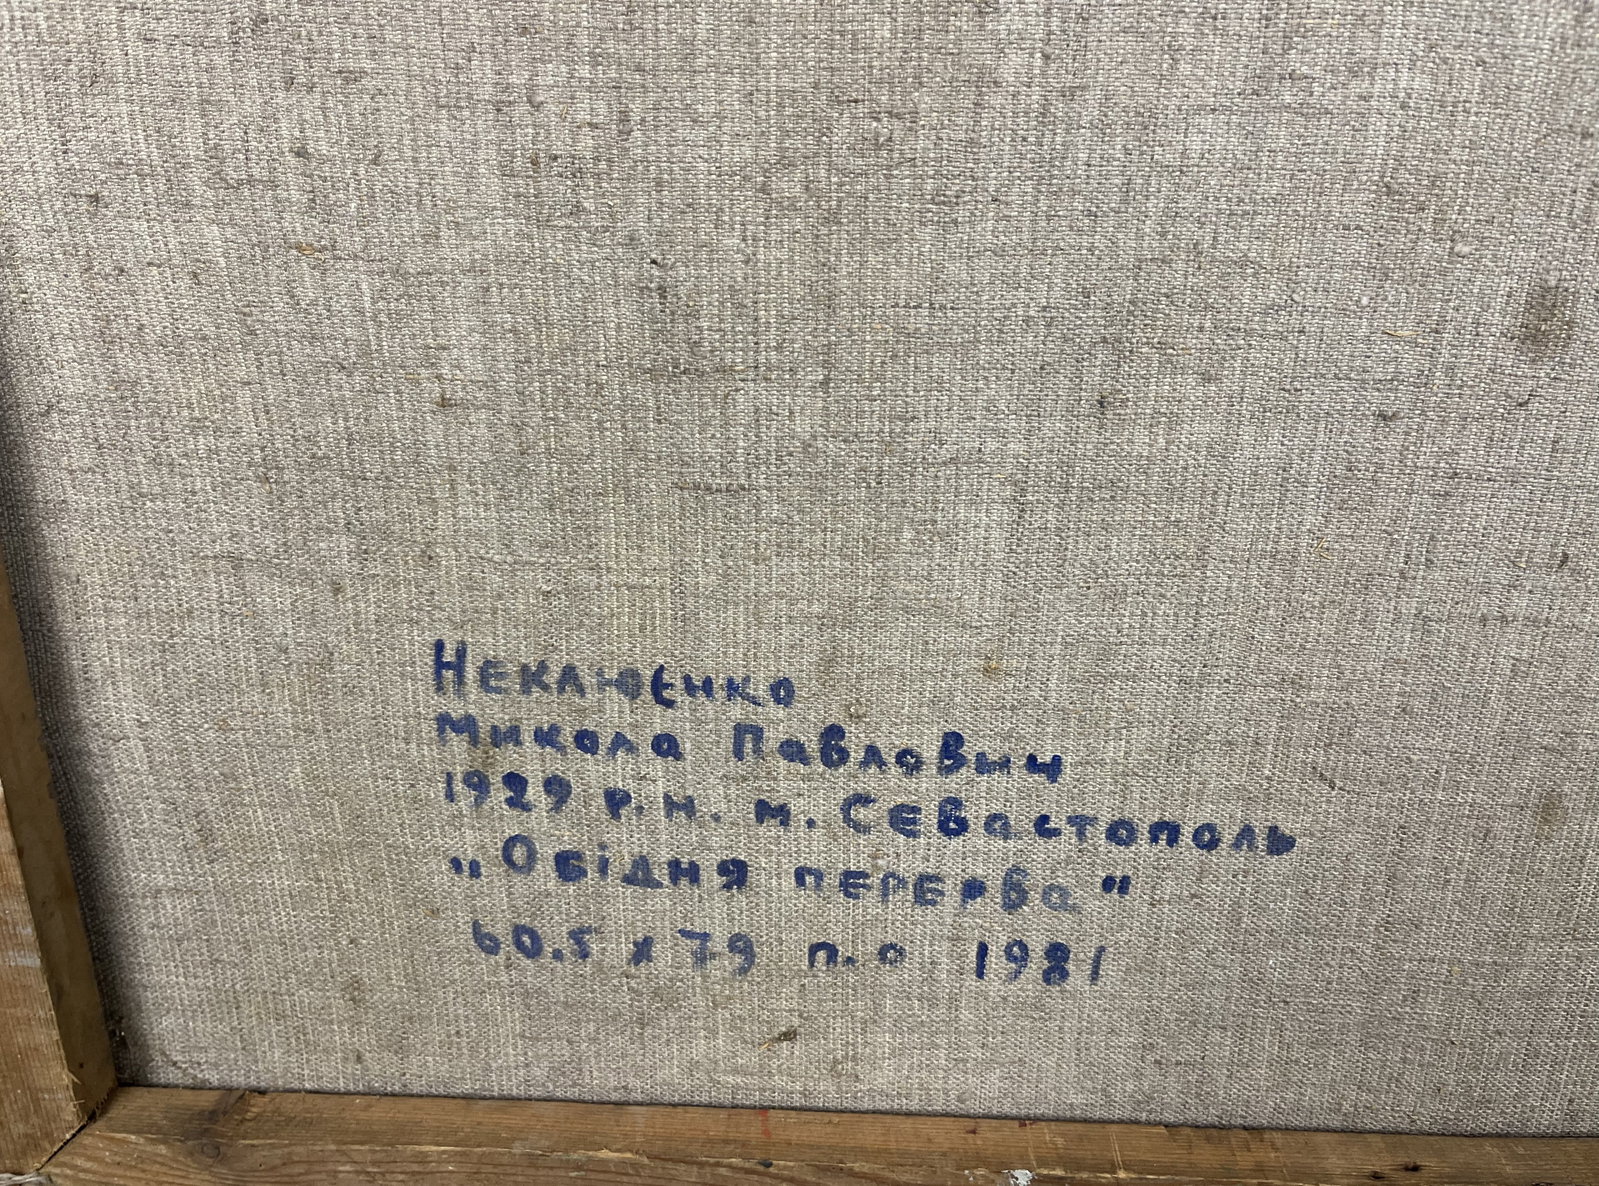 Неклюєнко
Микола Павлович
1929 р.н. м. Севастополь
„Обідня перерва"
60.5 х 79 п.о 1981